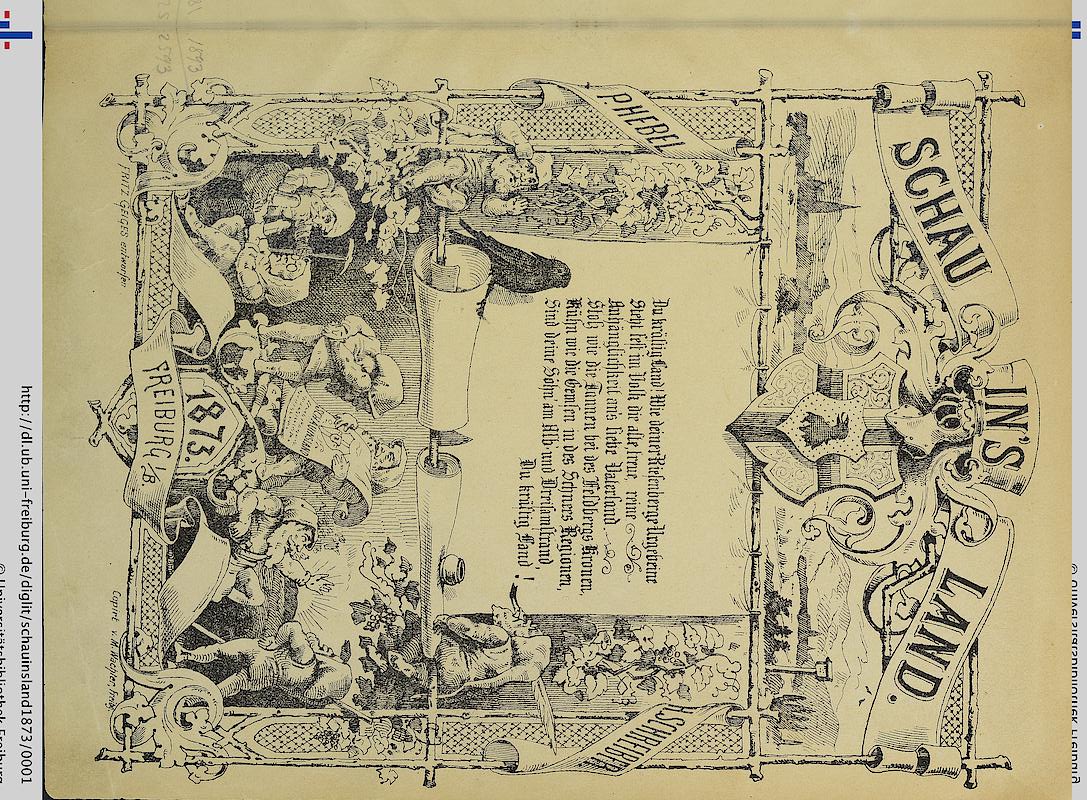 SCHAU
IN'S
LAND.
P. HEBEL
A. SCHREIBER
Du kräftig Land! Wie deiner Riesenberge Urgebeine
Steht fest im Volk die alte, treue, reine
Anhänglichkeit an's liebe Vaterland.
Stolz wie die Tannen bei des Feldbergs Kronen,
Kühn wie die Gemsen in des Schnees Regionen,
Sind deine Söhn' am Alb und Dreisamstrand,
Du kräftig Land!
1873.
FREIBURG i/B
FRITZ GEIGES entworfen
1893
http://dl.ub.uni-freiburg.de/diglit/schauinsland1873/0001
© Universitätsbibliothek Freiburg